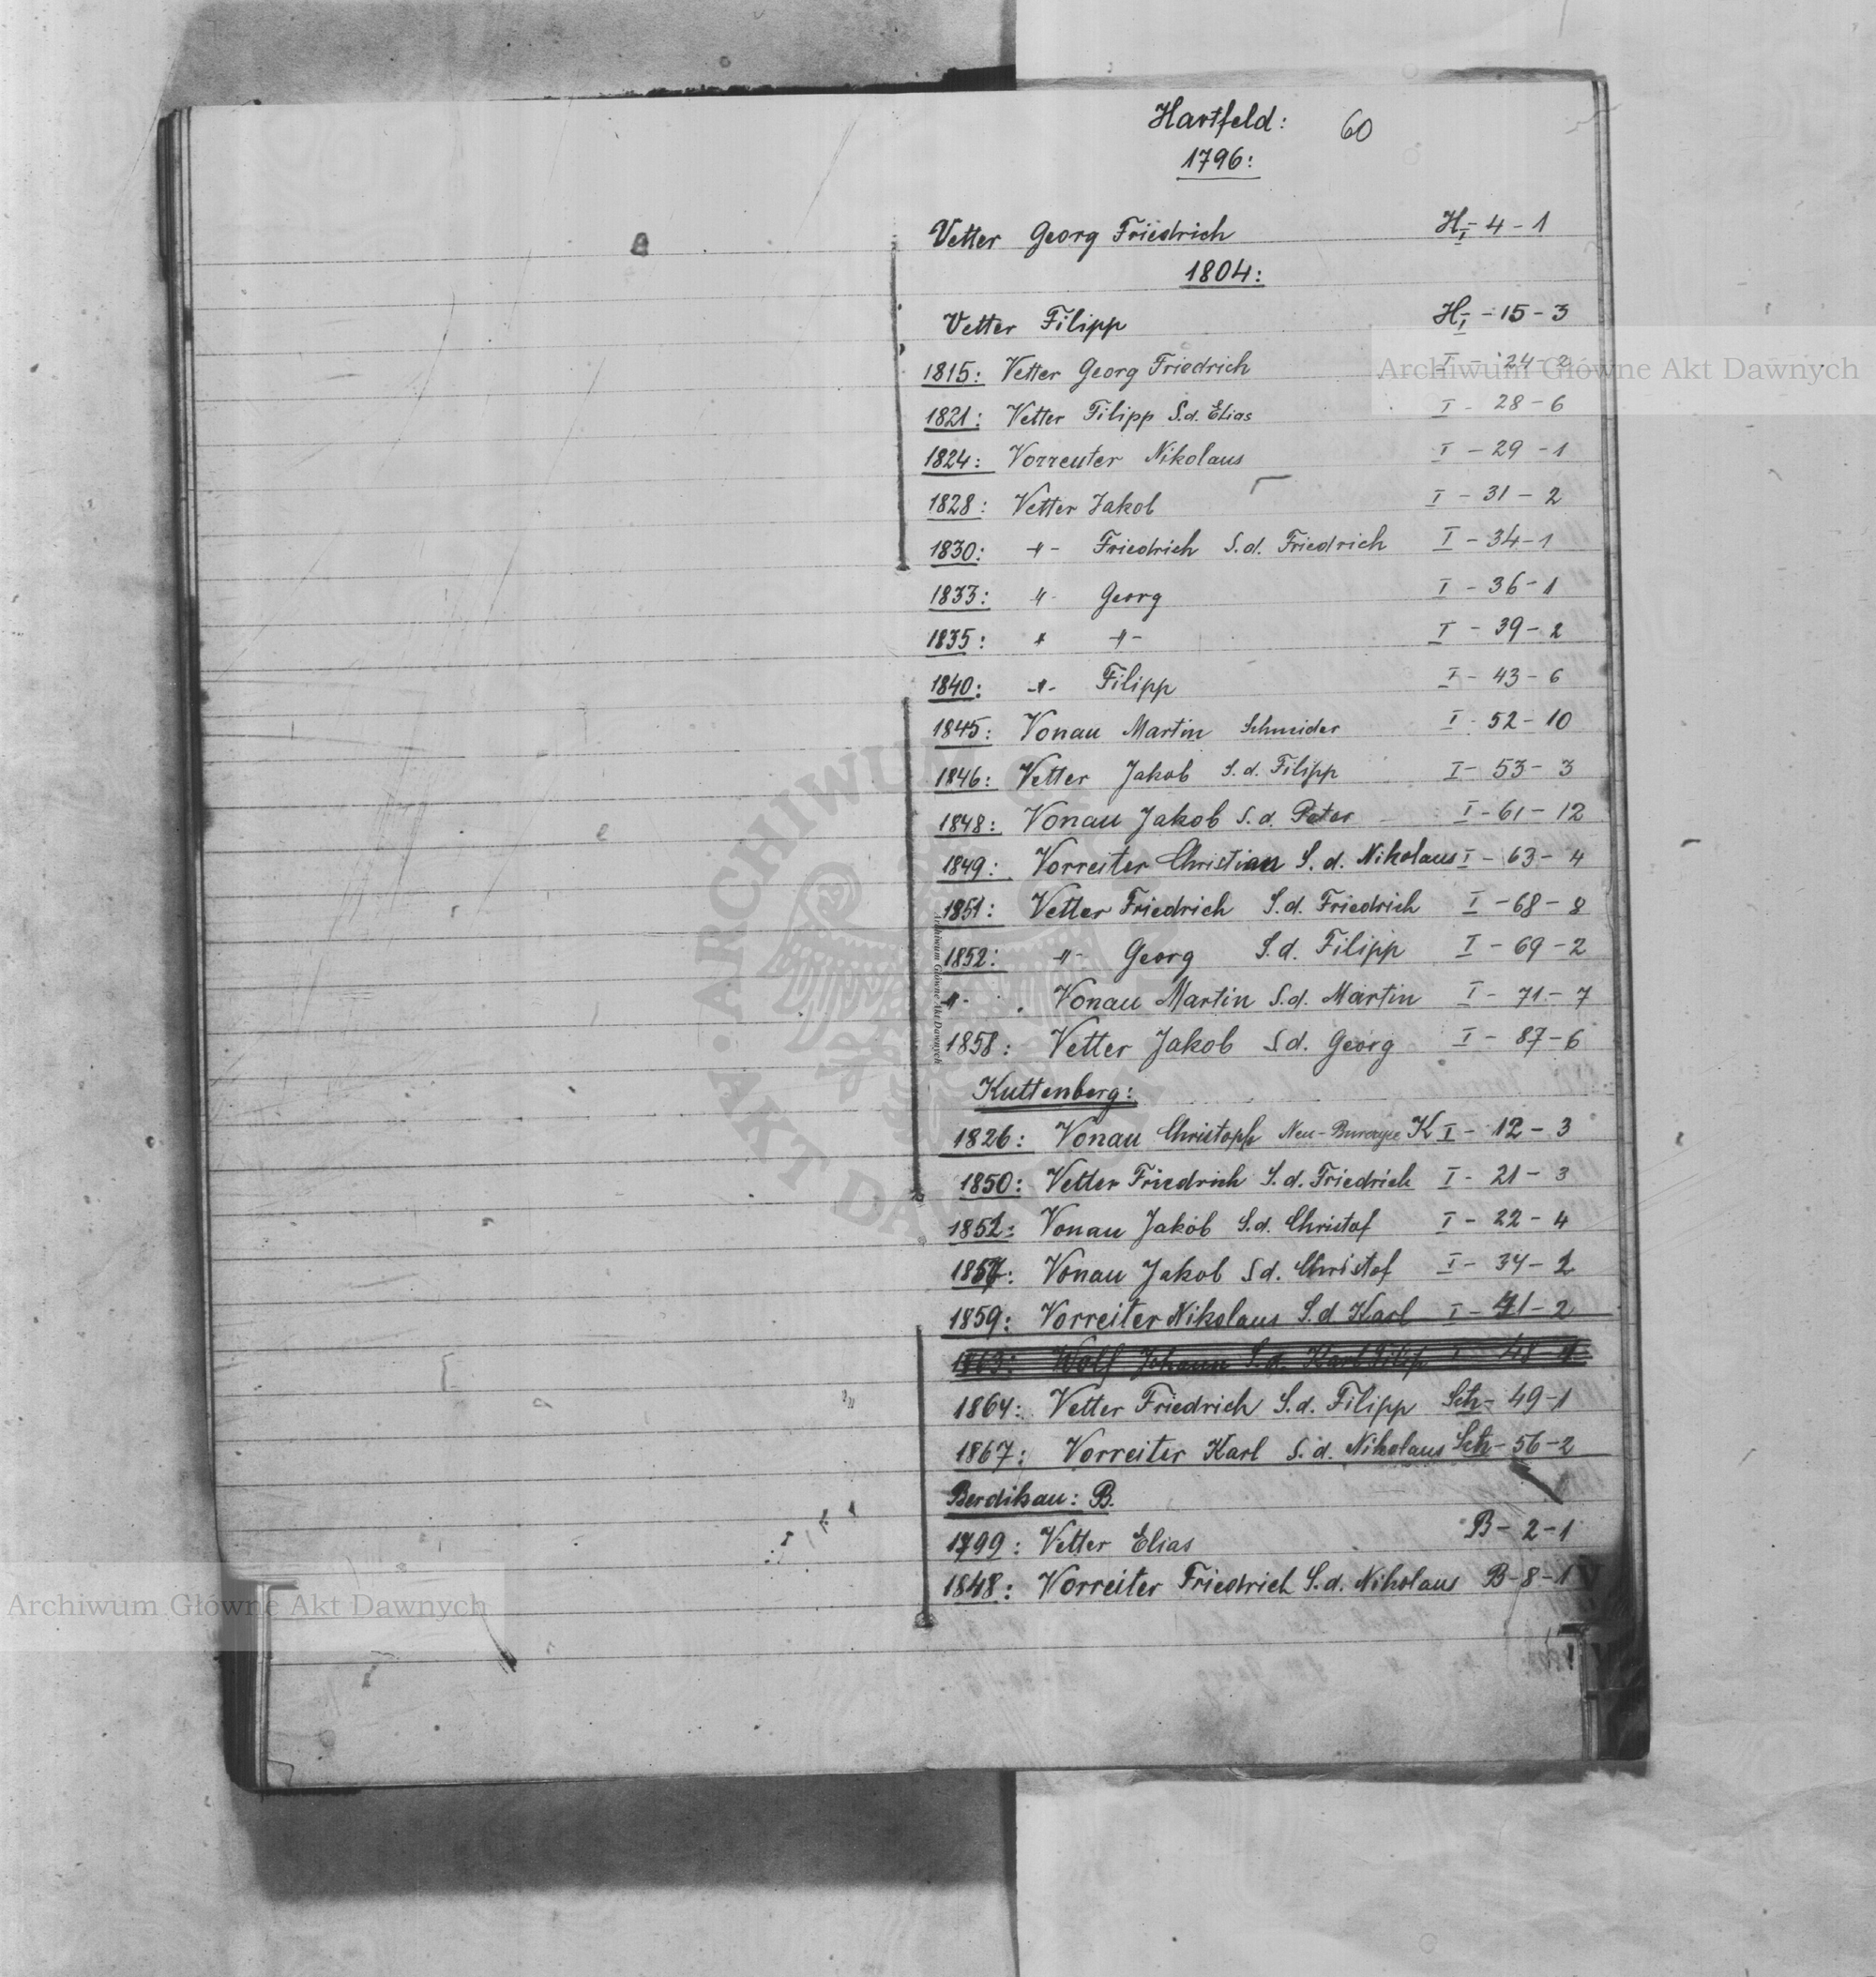 Hartfeld: 60
1796:
Vetter Georg Friedrich H I - 4 - 1
1804:
Vetter Filipp H I - 15 - 3
1815: Vetter Georg Friedrich I - 24 - 2
1821: Vetter Filipp S.d. Elias I - 28 - 6
1824: Vorreuter Nikolaus I - 29 - 1
1828: Vetter Jakob I - 31 - 2
1830: -"- Friedrich S.d. Friedrich I - 34 - 1
1833: "- Georg I - 36 - 1
1835: " -"- I - 39 - 2
1840: -"- Filipp I - 43 - 6
1845: Vonau Martin Schneider I - 52 - 10
1846: Vetter Jakob S.d. Filipp I - 53 - 3
1848: Vonau Jakob S.d. Peter I - 61 - 12
1849: Vorreiter Christian S.d. Nikolaus I - 63 - 4
1851: Vetter Friedrich S.d. Friedrich I - 68 - 8
1852: -"- Georg S.d. Filipp I - 69 - 2
-"- Vonau Martin S.d. Martin I - 71 - 7
1858: Vetter Jakob S.d. Georg I - 87 - 6
Kuttenberg:
1826: Vonau Christoph Neu- K I - 12 - 3
1850: Vetter Friedrich S.d. Friedrich I - 21 - 3
1852: Vonau Jakob S.d. Christof I - 22 - 4
1857: Vonau Jakob S.d. Christof I - 34 - 2
1859: Vorreiter Nikolaus S.d. Karl I - 41 - 2
1863: Wolf Johann S.d. Karl Filip I - 48
1864: Vetter Friedrich S.d. Filipp - 49 - 1
1867: Vorreiter Karl S.d. Nikolaus - 56 - 2
Berdikau: B.
1799: Vetter Elias B - 2 - 1
1848: Vorreiter Friedrich S.d. Nikolaus B - 8 - 1
Archiwum Główne Akt Dawnych
Archiwum Główne Akt Dawnych
Archiwum Główne Akt Dawnych
ARCHIWUM GŁÓWNE AKT DAWNYCH